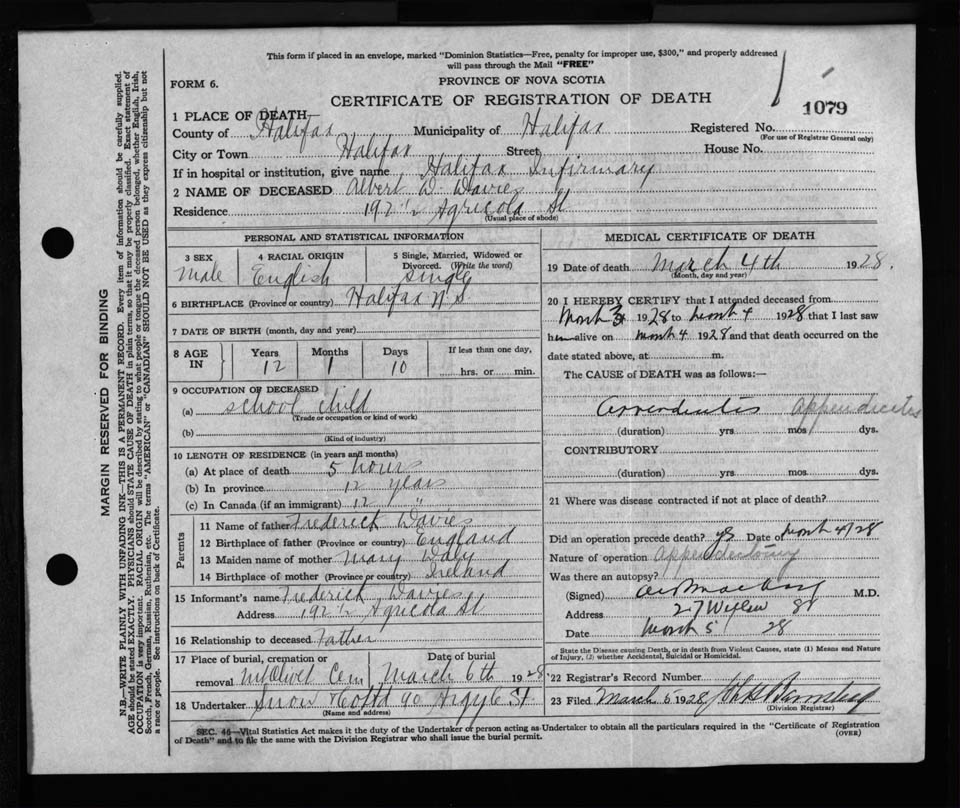 This form if placed in an envelope, marked "Dominion Statistics—Free, penalty for improper use, $300," and properly addressed
will pass through the Mail "FREE"
FORM 6.
PROVINCE OF NOVA SCOTIA
CERTIFICATE OF REGISTRATION OF DEATH
1079
1 PLACE OF DEATH
County of Halifax Municipality of Halifax Registered No.
(For use of Registrar General only)
City or Town Halifax Street House No.
If in hospital or institution, give name Halifax Infirmary
2 NAME OF DECEASED Albert W. Davies
Residence 192 1/2 Agricola St
(Usual place of abode)
PERSONAL AND STATISTICAL INFORMATION
3 SEX 4 RACIAL ORIGIN 5 Single, Married, Widowed or Divorced. (Write the word)
Male English Single
6 BIRTHPLACE (Province or country) Halifax N S
7 DATE OF BIRTH (month, day and year)
8 AGE IN Years Months Days If less than one day,
12 1 10 hrs. or min.
9 OCCUPATION OF DECEASED
(a) School child
(Trade or occupation or kind of work)
(b)
(Kind of industry)
10 LENGTH OF RESIDENCE (in years and months)
(a) At place of death 5 hours
(b) In province 12 years
(c) In Canada (if an immigrant) 12 "
Parents
11 Name of father Frederick Davies
12 Birthplace of father (Province or country) England
13 Maiden name of mother Mary Daly
14 Birthplace of mother (Province or country) Ireland
15 Informant's name Frederick Davies
Address 192 1/2 Agricola St
16 Relationship to deceased Father
17 Place of burial, cremation or removal Mt Olivet Cem Date of burial March 6th 1928
18 Undertaker Snow & Co Ltd 90 Argyle St
(Name and address)
MEDICAL CERTIFICATE OF DEATH
19 Date of death March 4th 1928.
(Month, day and year)
20 I HEREBY CERTIFY that I attended deceased from
March 1928 to March 4 1928 that I last saw
him alive on March 4 1928 and that death occurred on
date stated above, at m.
The CAUSE of DEATH was as follows:—
Appendicitis Appendicites
(duration) yrs mos dys.
CONTRIBUTORY
(duration) yrs. mos. dys.
21 Where was disease contracted if not at place of death?
Did an operation precede death? yes Date of March 4/28
Nature of operation Appendectomy
Was there an autopsy?
(Signed) M.D.
Address 27 St
Date March 5 28
State the Disease causing Death, or in Death from Violent Causes, state (1) Means and Nature
of Injury, (2) whether Accidental, Suicidal or Homicidal.
22 Registrar's Record Number
23 Filed March 6 1928
(Division Registrar)
SEC. 46—Vital Statistics Act makes it the duty of the Undertaker or person acting as Undertaker to obtain all the particulars required in the "Certificate of Registration
of Death" and to file the same with the Division Registrar who shall issue the burial permit.
(OVER)
MARGIN RESERVED FOR BINDING
N.B.—WRITE PLAINLY WITH UNFADING INK—THIS IS A PERMANENT RECORD. Every item of information should be carefully supplied.
AGE should be stated EXACTLY. PHYSICIANS should STATE CAUSE OF DEATH in plain terms, so that it may be properly classified. Exact statement of
OCCUPATION is very important. RACIAL ORIGIN will be described by stating to what people or tongue the deceased person belonged, whether English, Irish,
Scotch, French, German, Russian, Ruthenian, etc. The terms "AMERICAN" or "CANADIAN" SHOULD NOT BE USED as they express citizenship but not
a race or people. See instructions on back of Certificate.